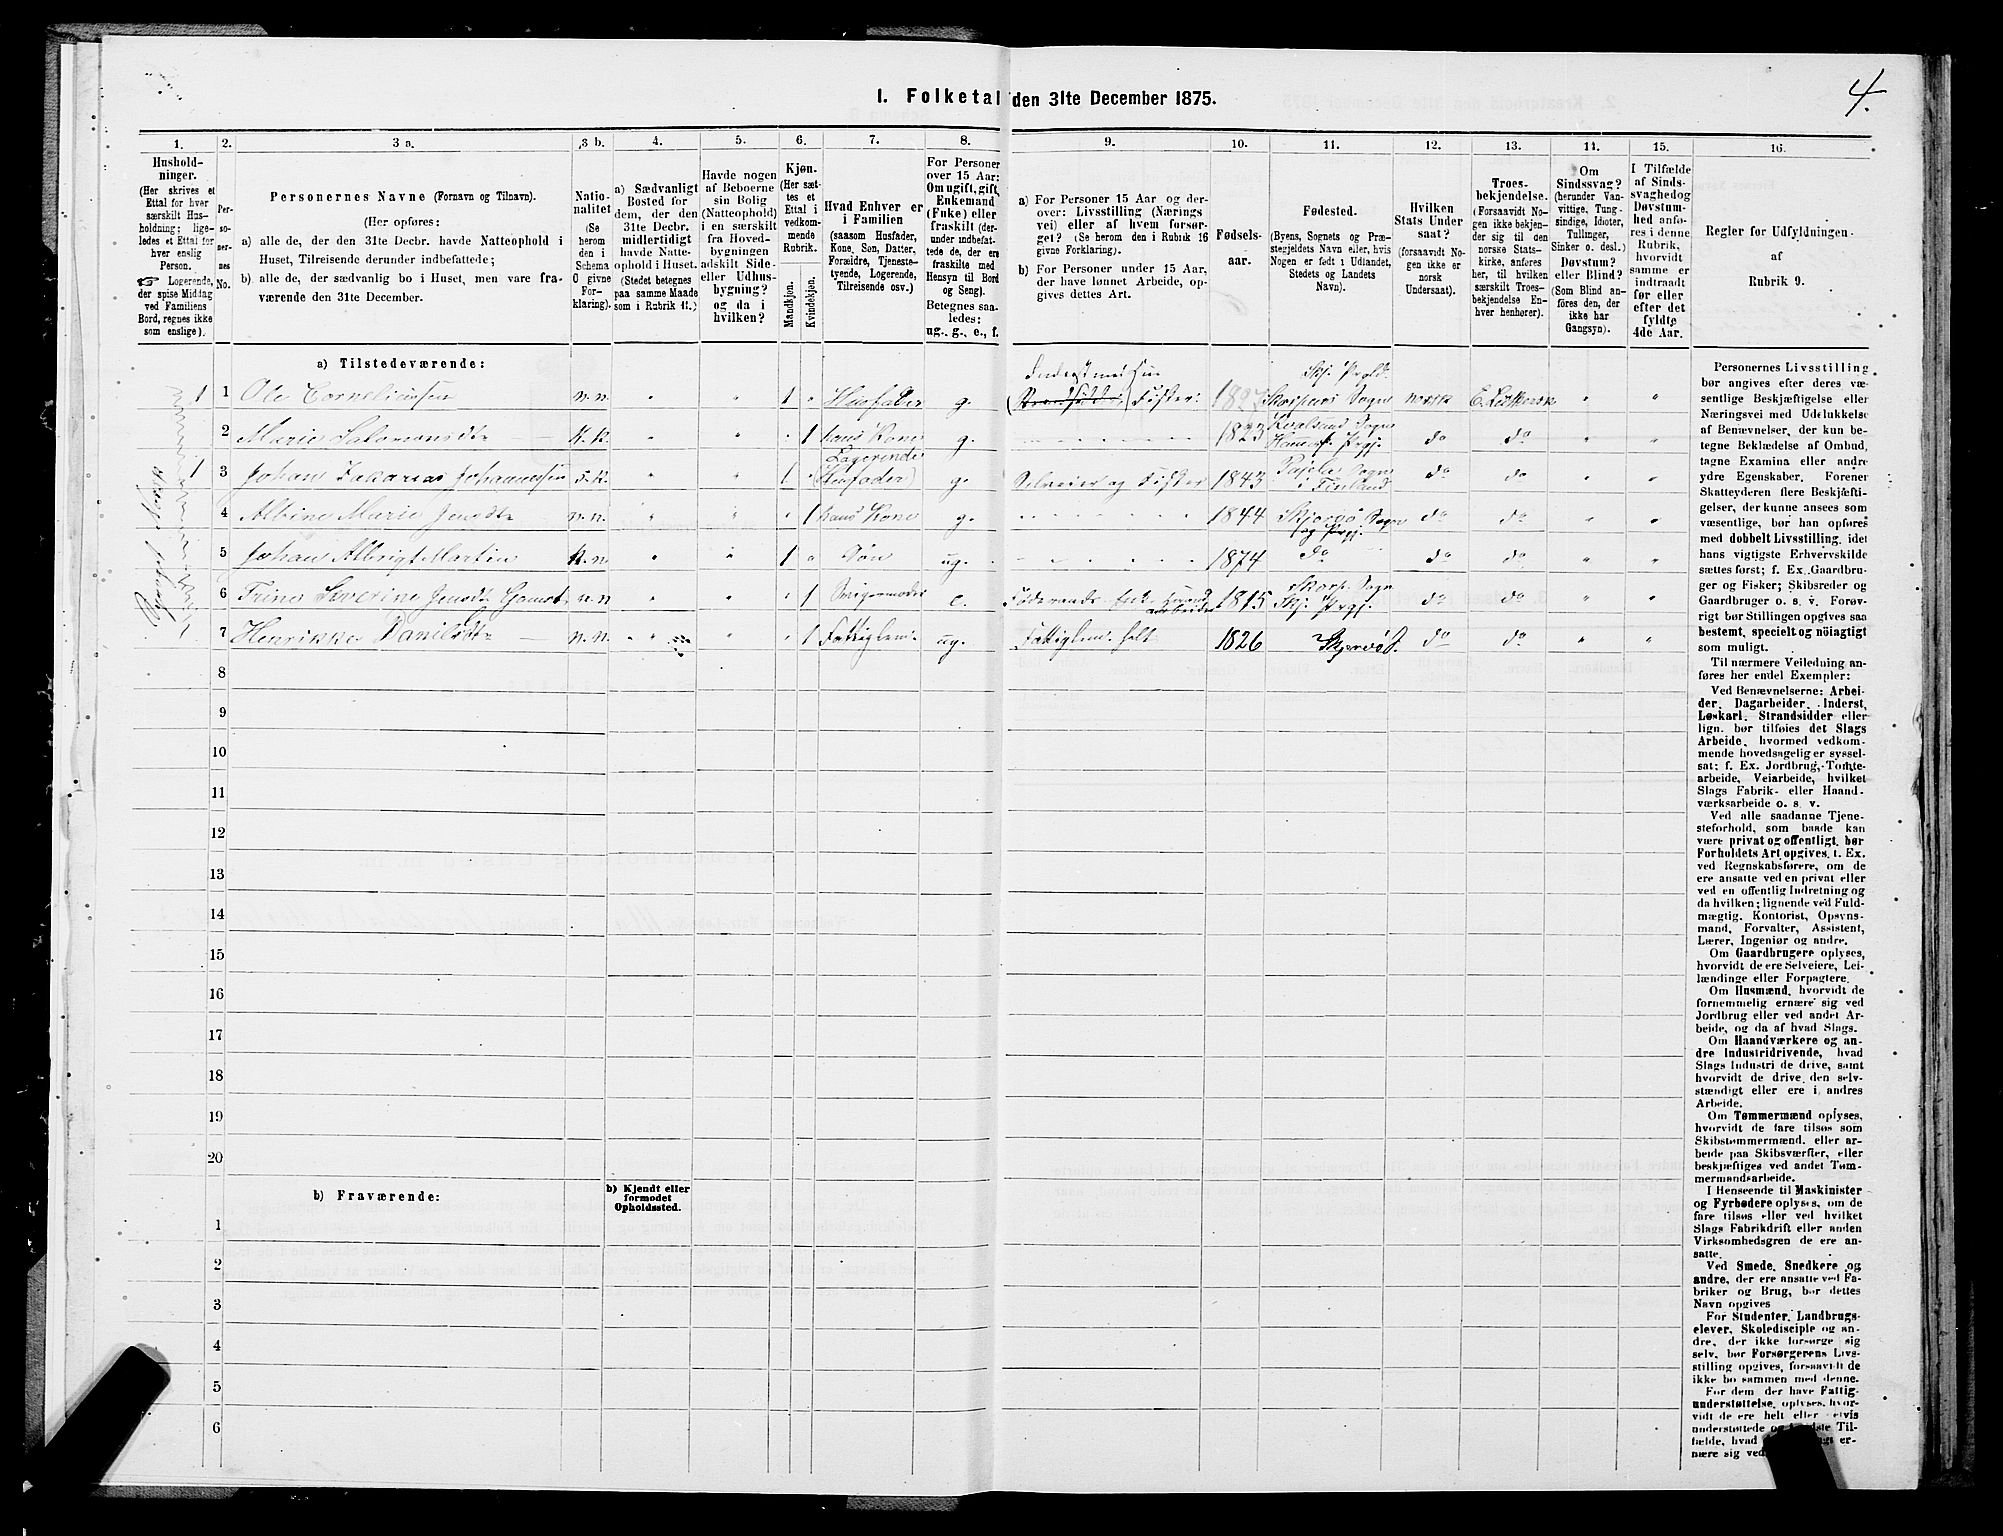 4.
1. Folketal den 31te December 1875.
1. 2. 3 a. 3 b. 4. 5. 6. 7. 8. 9. 10. 11. 12. 13. 14. 15. 16.
Hushold-
ninger.
(Her skrives et
Ettal for hver
særskilt Hus-
holdning; lige-
ledes et Ettal for
hver enslig
Person.
☞ Logerende,
der spise Middag
ved Familiens
Bord, regnes ikke
som enslige).
Per-
so-
ner-
nes
No.
Personernes Navne (Fornavn og Tilnavn).
(Her opføres:
a) alle de, der den 31te Decbr. havde Natteophold i
Huset, Tilreisende derunder indbefattede;
b) alle de, der sædvanlig bo i Huset, men vare fra-
værende den 31te December.
Natio-
nalitet
(Se
herom
den i
Schema
O givne
For-
klaring).
a) Sædvanligt
Bosted for
dem, der den
31te Decbr.
midlertidigt
havde Natte-
ophold i Huset.
(Stedet betegnes
paa samme Maade
som i Rubrik 11.)
Havde nogen
af Beboerne
sin Bolig
(Natteophold)
i en særskilt
fra Hoved-
bygningen
adskilt Side-
eller Udhus-
bygning?
og da i
hvilken?
Kjøn.
(Her sæt-
tes et
Ettal i
vedkom-
mende
Rubrik.
Mandkjøn.
Kvindekjøn.
Hvad Enhver er
i Familien
(saasom Husfader,
Kone, Søn, Datter,
Forældre, Tjeneste-
tyende, Logerende,
Tilreisende osv.)
For Personer
over 15 Aar:
Om ugift, gift,
Enkemand
(Enke) eller
fraskilt (der-
under indbefat-
tede de, der ere
fraskilte med
Hensyn til Bord
og Seng).
Betegnes saa-
ledes:
ug., g., e., f.
a) For Personer 15 Aar og der-
over: Livsstilling (Nærings
vei) eller af hvem forsør-
get? (Se herom den i Rubrik 16
givne Forklaring).
b) For Personer under 15 Aar,
der have lønnet Arbeide, op-
gives dettes Art.
Fødsels-
aar.
Fødested.
(Byens, Sognets og Præ-
stegjeldets Navn eller, hvis
Nogen er født i Udlandet,
Stedets og Landets
Navn).
Hvilken
Stats Under
saat?
(forsaavidt No-
gen ikke er
norsk
Undersaat).
Troes-
bekjendelse.
(Forsaavidt No-
gen ikke bekjen-
der sig til den
norske Stats-
kirke, anføres
her, til hvilken
særskilt Troes-
bekjendelse En-
hver henhører).
Om
Sindssvag?
(herunder Van-
vittige, Tung-
sindige, Idioter,
Tullinger,
Sinker o. desl.)
Døvstum?
eller Blind?
(Som Blind an-
føres den, der
ikke har
Gangsyn).
I Tilfælde
af Sinds-
svaghed og
Døvstum-
hed anfø-
res i denne
Rubrik,
hvorvidt
samme er
indtraadt
før eller
efter det
fyldte
4de Aar.
Regler for Udfyldningen
af
Rubrik 9.
a) Tilstedeværende:
Inderst med Hus Skj. Prgld.
1 1 Ole Corneliussen n.n. " " 1 Husfader g. Fisker 1827 Skorpens Sogn norsk E. Luthersk " "
2 Marie Salomonsdtr K.K. " " 1 hans Kone g. 1823 Kvalsund Sogn Hamerf. Prgj. do do " "
1 3 Johan Zakarias Johannessen F.K. " " 1 " Logerende (Husfader) g. Selveier og Fisker 1843 Pajele Sogn i Finland do do " "
4 Albine Marie Jensdtr n.n. " " 1 hans Kone g. 1844 Skjervø Sogn og Prgj. do do " "
5 Johan Albrigt Martin K.n. " " 1 " Søn ug. 1874 do do do " "
6 Trine Severine Jensdtr n.n " " 1 Svigermoder e. Føderaads Enke 1815 Skorp. Sogn Skj. Prgj. do do " "
7 Henrikke Danilsdtr n.n. " " 1 Fattiglem ug. Fattiglem helt 1826 Skjervø S. do do " "
8
9
10
11
12
13
14
15
16
17
18
19
20
b) Fraværende:
b) Kjendt eller
formodet
Opholdssted.
1
2
3
4
5
6
Personernes Livsstilling
bør angives efter deres væ-
sentlige Beskjæftigelse eller
Næringsvei med Udelukkelse
af Benævnelser, der kun be-
tegne Beklædelse af Ombud,
tagne Examina eller andre
ydre Egenskaber. Forener
Skatteyderen flere Beskjæfti-
gelser, der kunne ansees som
væsentlige, bør han opføres
med dobbelt Livsstilling, idet
hans vigtigste Erhvervskilde
sættes først; f. Ex. Gaardbru-
ger og Fisker; Skibsreder og
Gaardbruger o. s. v. Forøv-
rigt bør Stillingen opgives saa
bestemt, specielt og nöiagtigt
som muligt.
Til nærmere Veiledning an-
føres her endel Exempler:
Ved Benævnelserne: Arbei-
der, Dagarbeider, Inderst,
Løskarl, Strandsidder eller
lign. bør tilføies det Slags
Arbeide, hvormed vedkom-
mende hovedsagelig er syssel-
sat; f. Ex. Jordbrug, Tomte-
arbeide, Veiarbeide, hvilket
Slags Fabrik- eller Haand-
værksarbeide o. s. v.
Ved alle saadanne Tjene-
steforhold, som baade kan
være privat og offentligt, bør
Forholdets Art opgives, t. Ex.
ved Regnskabsførere, om de
ere ansatte ved en privat eller
ved en offentlig Indretning og
da hvilken; lignende ved Fuld-
mægtig, Kontorist, Opsyns-
mand, Forvalter, Assistent,
Lærer, Ingeniør og andre.
Om Gaardbrugere oplyses,
hvorvidt de ere Selveiere, Lei-
lændinge eller Forpagtere.
Om Husmænd, hvorvidt de
fornemmelig ernære sig ved
Jordbrug eller ved andet Ar-
beide, og da af hvad Slags.
Om Haandværkere og an-
dre Industridrivende, hvad
Slags Industri de drive, samt
hvorvidt de drive den selv-
stændigt eller ere i andres
Arbeide.
Om Tømmermænd oplyses,
hvorvidt de fare tilsøs som
Skibstømmermænd, eller ar-
beide paa Skibsværfter, eller
beskjæftiges ved andet Tøm-
mermandsarbeide.
I Henseende til Maskinister
og Fyrbødere oplyses, om de
fare tilsøs eller ved hvilket
Slags Fabrikdrift eller anden
Virksomhedsgren de ere an-
satte.
Ved Smede, Snedkere og
andre, der ere ansatte ved Fa-
briker og Brug, bør dettes
Navn opgives
For Studenter, Landbrugs-
elever, Skoledisciple og an-
dre, der ikke forsørge sig
selv, bør Forsørgerens Livs-
stilling opgives, forsaavidt de
ikke bo sammen med denne.
For dem der have Fattig-
understøttelse, oplyses, hvor-
vidt de ere helt eller delvis
understøttede og i sidste Til-
fælde, hvad er-
nære sig ved